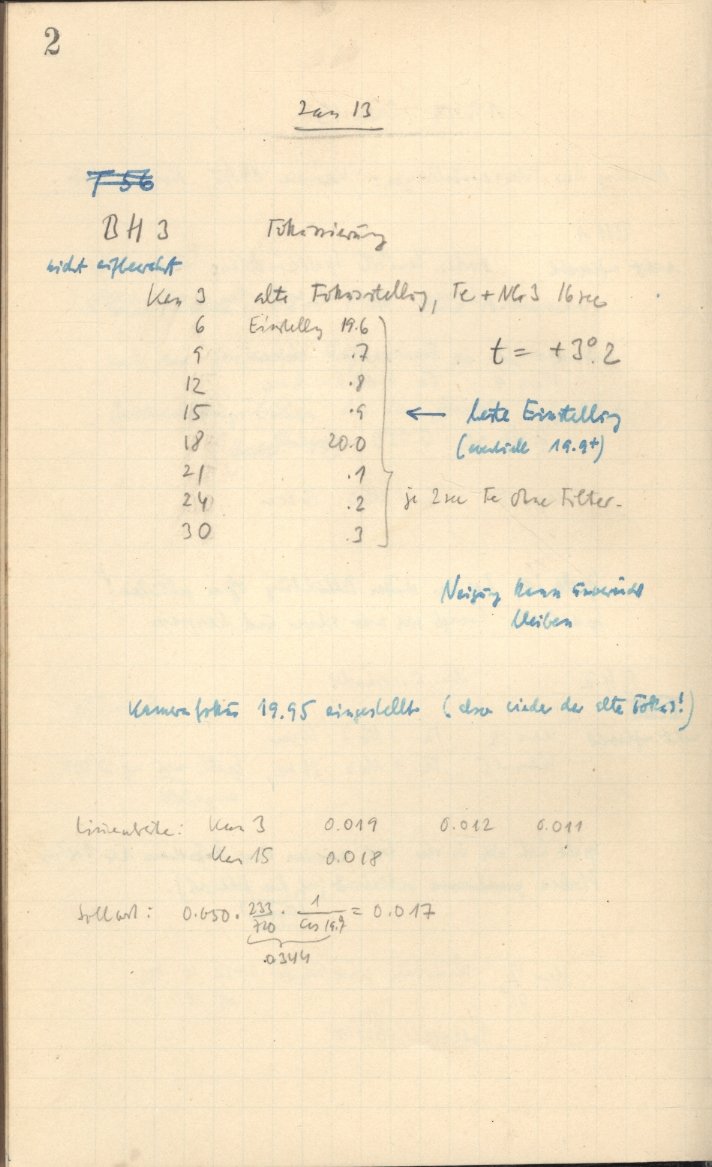 2
Jan 13
T 56
BH 3 Fokussierung
nicht aufbewahrt
Kas 3 alte Fokusstellung, Fe + NG 3 16 sec
6 Einstellung 19.6
9 .7 t = +3°.2
12 .8
15 .9 ← beste Einstellung
18 20.0 (eventuell 19.9+)
21 .1
24 .2 je 2 sec Fe ohne Filter.
30 .3
Neigung kann
bleiben
Kamerafokus 19.95 eingestellt (also wieder der alte Fokus!)
Linienbreite: Kas 3 0.019 0.012 0.011
Kas 15 0.018
Sollwert: 0.050 · 233/720 · 1/cos 19.9 = 0.017
.0344